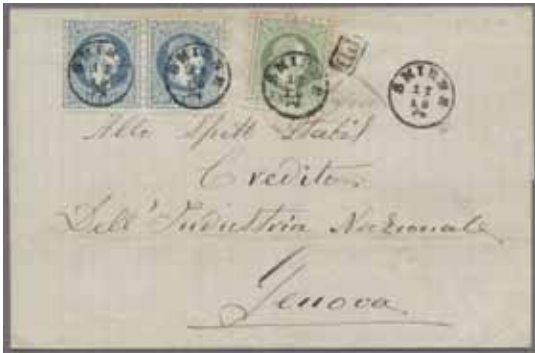 SMIRNE
SMIRNE
SMIRNE
SMIRNE
Allo Spett Stabil
Credito
Dell' Industria Nazionale
Genova